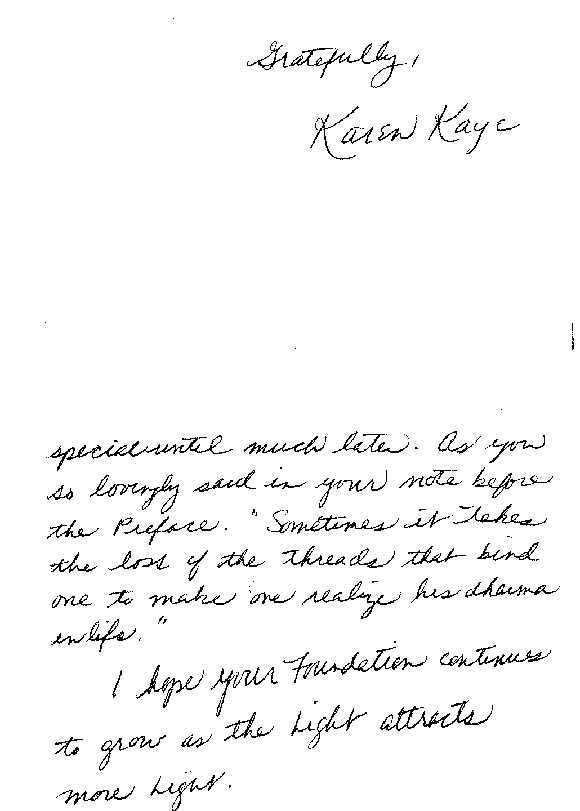 Gratefully,
Karen Kaye
special until much later. As you
so lovingly said in your note before
the Preface. "Sometimes it takes
the loss of the threads that bind
one to make one realize his dharma
in life."
I hope your Foundation continues
to grow as the Light attracts
more Light.